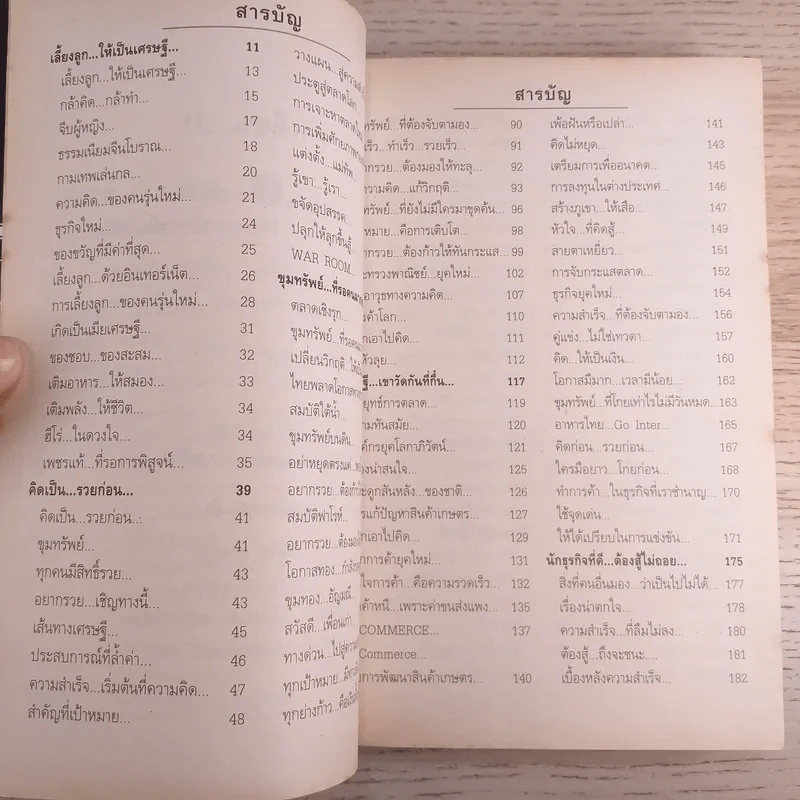 สารบัญ
เลี้ยงลูก...ให้เป็นเศรษฐี... 11
เลี้ยงลูก...ให้เป็นเศรษฐี... 13
กล้าคิด...กล้าทำ... 15
จีบผู้หญิง... 17
ธรรมเนียมจีนโบราณ... 18
กามเทพเล่นกล... 20
ความคิด...ของคนรุ่นใหม่... 21
ธุรกิจใหม่... 24
ของขวัญที่มีค่าที่สุด... 25
เลี้ยงลูก...ด้วยอินเทอร์เน็ต... 26
การเลี้ยงลูก...ของคนรุ่นใหม่... 28
เกิดเป็นเมียเศรษฐี... 31
ของชอบ...ของสะสม... 32
เติมอาหาร...ให้สมอง... 33
เติมพลัง...ให้ชีวิต... 34
ฮีโร่...ในดวงใจ... 34
เพชรแท้...ที่รอการพิสูจน์... 35
คิดเป็น...รวยก่อน... 39
คิดเป็น...รวยก่อน... 41
ขุมทรัพย์... 41
ทุกคนมีสิทธิ์รวย... 43
อยากรวย...เชิญทางนี้... 43
เส้นทางเศรษฐี... 45
ประสบการณ์ที่ล้ำค่า... 46
ความสำเร็จ...เริ่มต้นที่ความคิด... 47
สำคัญที่เป้าหมาย... 48
วางแผน...สู่ความ
ประตูสู่ตลาดโลก
การเจาะหาตลาด
การเพิ่มศักยภาพ
แต่งตั้ง...แม่ทัพ
รู้เขา...รู้เรา...
ขจัดอุปสรรค
ปลุกให้ลุกขึ้นสู้
WAR ROOM...
ขุมทรัพย์...ที่รอ
ตลาดเชิงรุก...
ขุมทรัพย์...ที่รอ
เปลี่ยนวิกฤติ...ให้
ไทยพลาดโอกาส
สมบัติใต้น้ำ...
ขุมทรัพย์บนดิน...
อย่าหยุดตรงแค่
อยากรวย...ต้อง
สมบัติฟาโรห์...
อยากรวย...ต้อง
โอกาสทอง...
ขุมทอง...อัญมณี...
สวัสดี...เพื่อนเก่า
ทางด่วน...ไปสู่ความ
ทุกเป้าหมาย...
ทุกย่างก้าว...คือ
สารบัญ
ทรัพย์...ที่ต้องจับตามอง... 90
เร็ว...ทำเร็ว...รวยเร็ว... 91
กรวย...ต้องมองให้ทะลุ... 92
ความคิด...แก้วิกฤติ... 93
ทรัพย์...ที่ยังไม่มีใครมาขุดค้น... 96
หมาย...คือการเติบโต... 98
กรวย...ต้องก้าวให้ทันกระแส... 99
ะทรวงพาณิชย์...ยุคใหม่... 102
อาวุธทางความคิด... 107
ค้าโลก... 110
กเอาไปคิด... 111
หัวลุย... 112
ฐี...เขาวัดกันที่กึ๋น... 117
ยุทธ์การตลาด... 119
ามทันสมัย... 120
ค์กรยุคโลกาภิวัตน์... 121
องน่าสนใจ... 125
ะดูกสันหลัง...ของชาติ... 126
รแก้ปัญหาสินค้าเกษตร... 127
กเอาไปคิด... 129
กการค้ายุคใหม่... 131
ใจการค้า...คือความรวดเร็ว... 132
ค้าหนี...เพราะค่าขนส่งแพง... 135
COMMERCE... 137
Commerce...
การพัฒนาสินค้าเกษตร... 140
เพ้อฝันหรือเปล่า... 141
คิดไม่หยุด... 143
เตรียมการเพื่ออนาคต... 145
การลงทุนในต่างประเทศ... 146
สร้างภูเขา...ให้เสือ... 147
หัวใจ...ที่คิดสู้... 149
สายตาเหยี่ยว... 151
การจับกระแสตลาด... 152
ธุรกิจยุคใหม่... 154
ความสำเร็จ...ที่ต้องจับตามอง... 156
คู่แข่ง...ไม่ใช่เทวดา... 157
คิด...ให้เป็นเงิน... 160
โอกาสมีมาก...เวลามีน้อย... 162
ขุมทรัพย์...ที่โกยเท่าไรไม่มีวันหมด...163
อาหารไทย...Go Inter... 165
คิดก่อน...รวยก่อน... 167
ใครมือยาว...โกยก่อน... 168
ทำการค้า...ในธุรกิจที่เราชำนาญ... 170
ใช้จุดเด่น...
ให้ได้เปรียบในการแข่งขัน... 171
นักธุรกิจที่ดี...ต้องสู้ไม่ถอย... 175
สิ่งที่คนอื่นมอง...ว่าเป็นไปไม่ได้... 177
เรื่องน่าตกใจ... 178
ความสำเร็จ...ที่ลืมไม่ลง... 180
ต้องสู้...ถึงจะชนะ.... 181
เบื้องหลังความสำเร็จ... 182